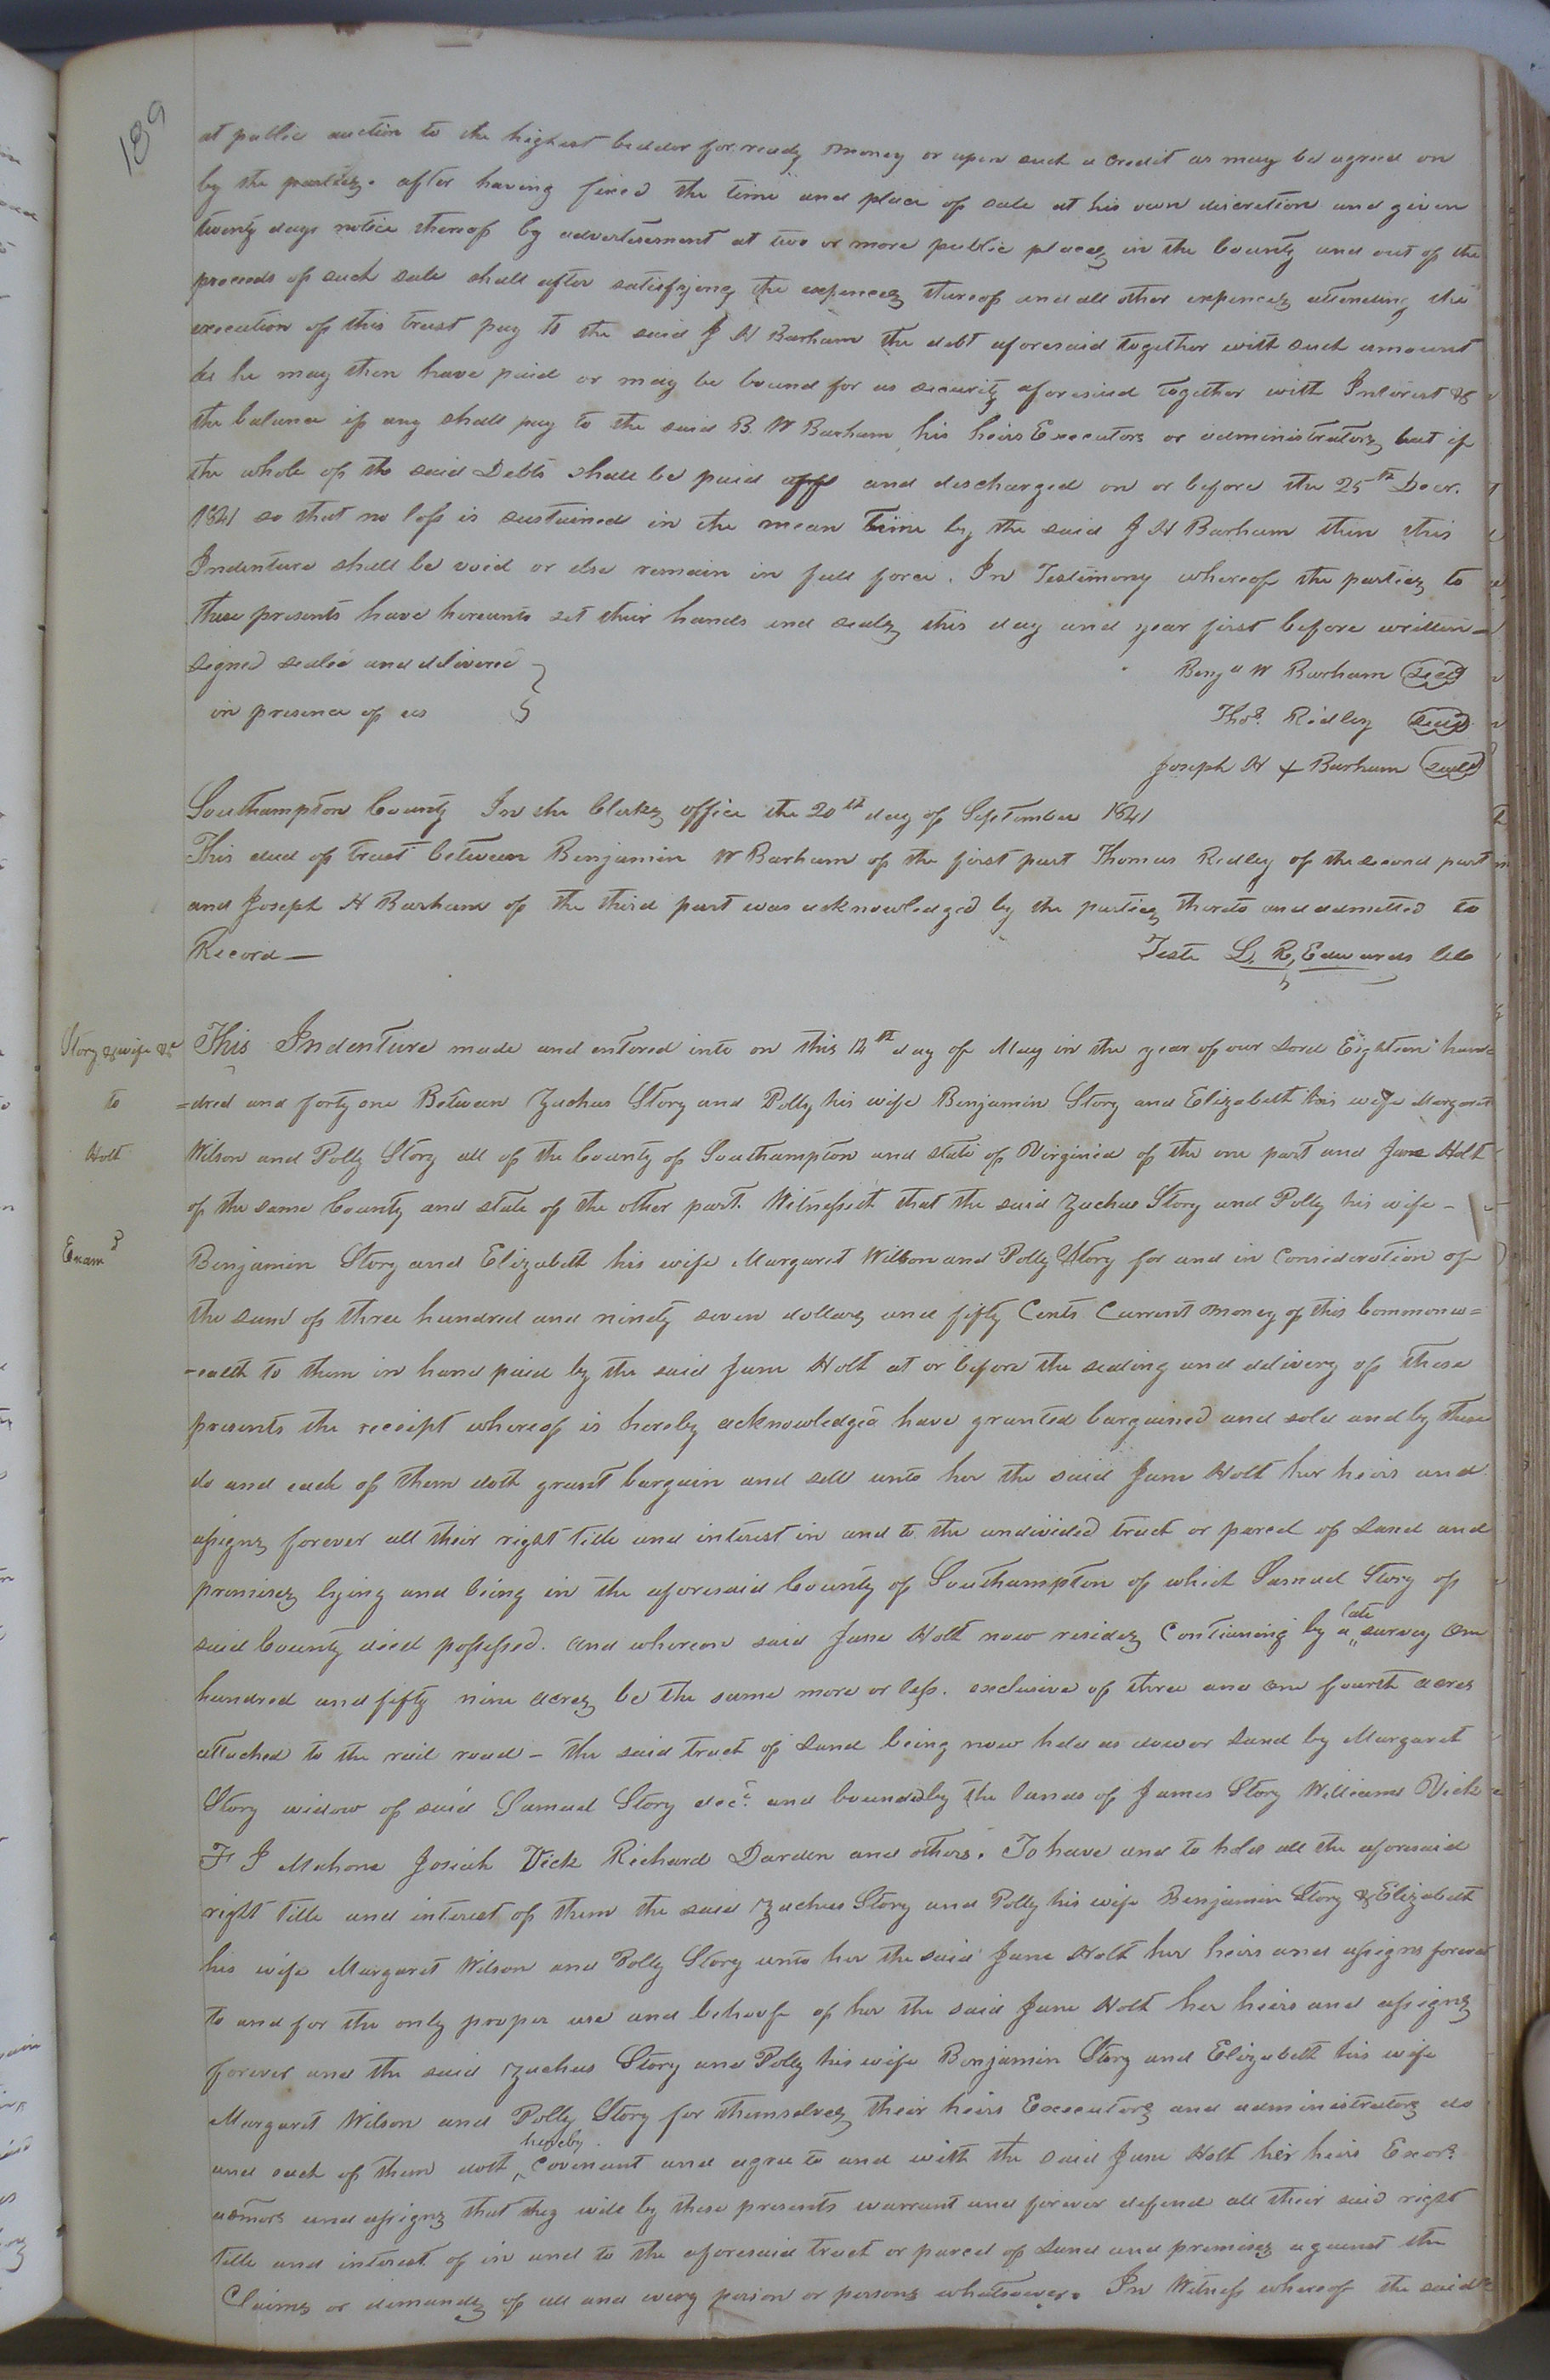 189
at public auction to the highest bedder for ready money or upon such a credit as may be agreed on
by the parties. after having fixed the time and place of sale at his own discretion and given
twenty days notice thereof by advertisement at two or more public places in the County and out of the
proceeds of such sale shall after satisfying the expences thereof and all other expences attending the
execution of this trust pay to the said J H Barham the debt aforesaid together with such amount
as he may then have paid or may be bound for as security aforesaid together with Interest &
the balance if any shall pay to the said B. W Barham his heirs Executors or administrators but if
the whole of the said Debts shall be paid off and discharged on or before the 25th Decr.
1841 so that no loss is sustained in the mean time by the said J H Barham then this
Indenture shall be void or else remain in full force. In Testimony whereof the parties to
these presents have hereunto set their hands and seals this day and year first before written—
signed sealed and delivered } Benja W Barham (Seal)
in presence of us } Thos. Ridley (Seal)
Joseph H + Barham (Seal)
Southampton County In the Clerks office the 20th day of September 1841
This deed of trust between Benjamin W Barham of the first part Thomas Ridley of the second part
and Joseph H Barham of the third part was acknowledged by the parties thereto and admitted to
Record— Teste L. R. Edwards Clo
Story & wife &c This Indenture made and entered into on this 12th day of May in the year of our Lord Eighteen hun=
to =dred and forty one Between Zachus Story and Polly his wife Benjamin Story and Elizabeth his wife Margaret
Holt Wilson and Polly Story all of the County of Southampton and state of Virginia of the one part and Jane Holt
of the same County and state of the other part. Witnesseth that the said Zachus Story and Polly his wife -
Examd Benjamin Story and Elizabeth his wife Margaret Wilson and Polly Story for and in Consideration of
the sum of three hundred and ninety seven dollars and fifty Cents Current money of this Commonw=
-ealth to them in hand paid by the said Jane Holt at or before the sealing and delivery of these
presents the receipt whereof is hereby acknowledged have granted bargained and sold and by these
do and each of them doth grant bargain and sell unto her the said Jane Holt her heirs and
assigns forever all their right title and interest in and to the undivided tract or parcel of Land and
premises lying and being in the aforesaid County of Southampton of which Samuel Story of
said County died possessed. and whereon said Jane Holt now resides Contianing by a late survey One
hundred and fifty nine acres be the same more or less. exclusive of three and one fourth acres
attached to the rail road - the said tract of Land being now held as dower Land by Margaret
Story widow of said Samuel Story decd. and bounded by the lands of James Story Williams Vick
F J Mahone Josiah Vick Richard Darden and others. To have and to hold all the aforesaid
right title and interest of them the said Zachus Story and Polly his wife Benjamin Story & Elizabeth
his wife Margaret Wilson and Polly Story unto her the said Jane Holt her heirs and assigns forever
to and for the only propper use and behoofe of her the said Jane Holt her heirs and assigns
forever and the said Zachus Story and Polly his wife Benjamin Story and Elizabeth his wife
Margaret Wilson and Polly Story for themselves their heirs Executors and administrators do
and each of them doth hereby Covenant and agree to and with the said Jane Holt her heirs Exors.
admors and assigns that they will by these presents warrant and forever defend all their said right
title and interest of in and to the aforesaid tract or parcel of Land and premises against the
Claims or demands of all and every person or persons whatsoever. In Witness whereof the said